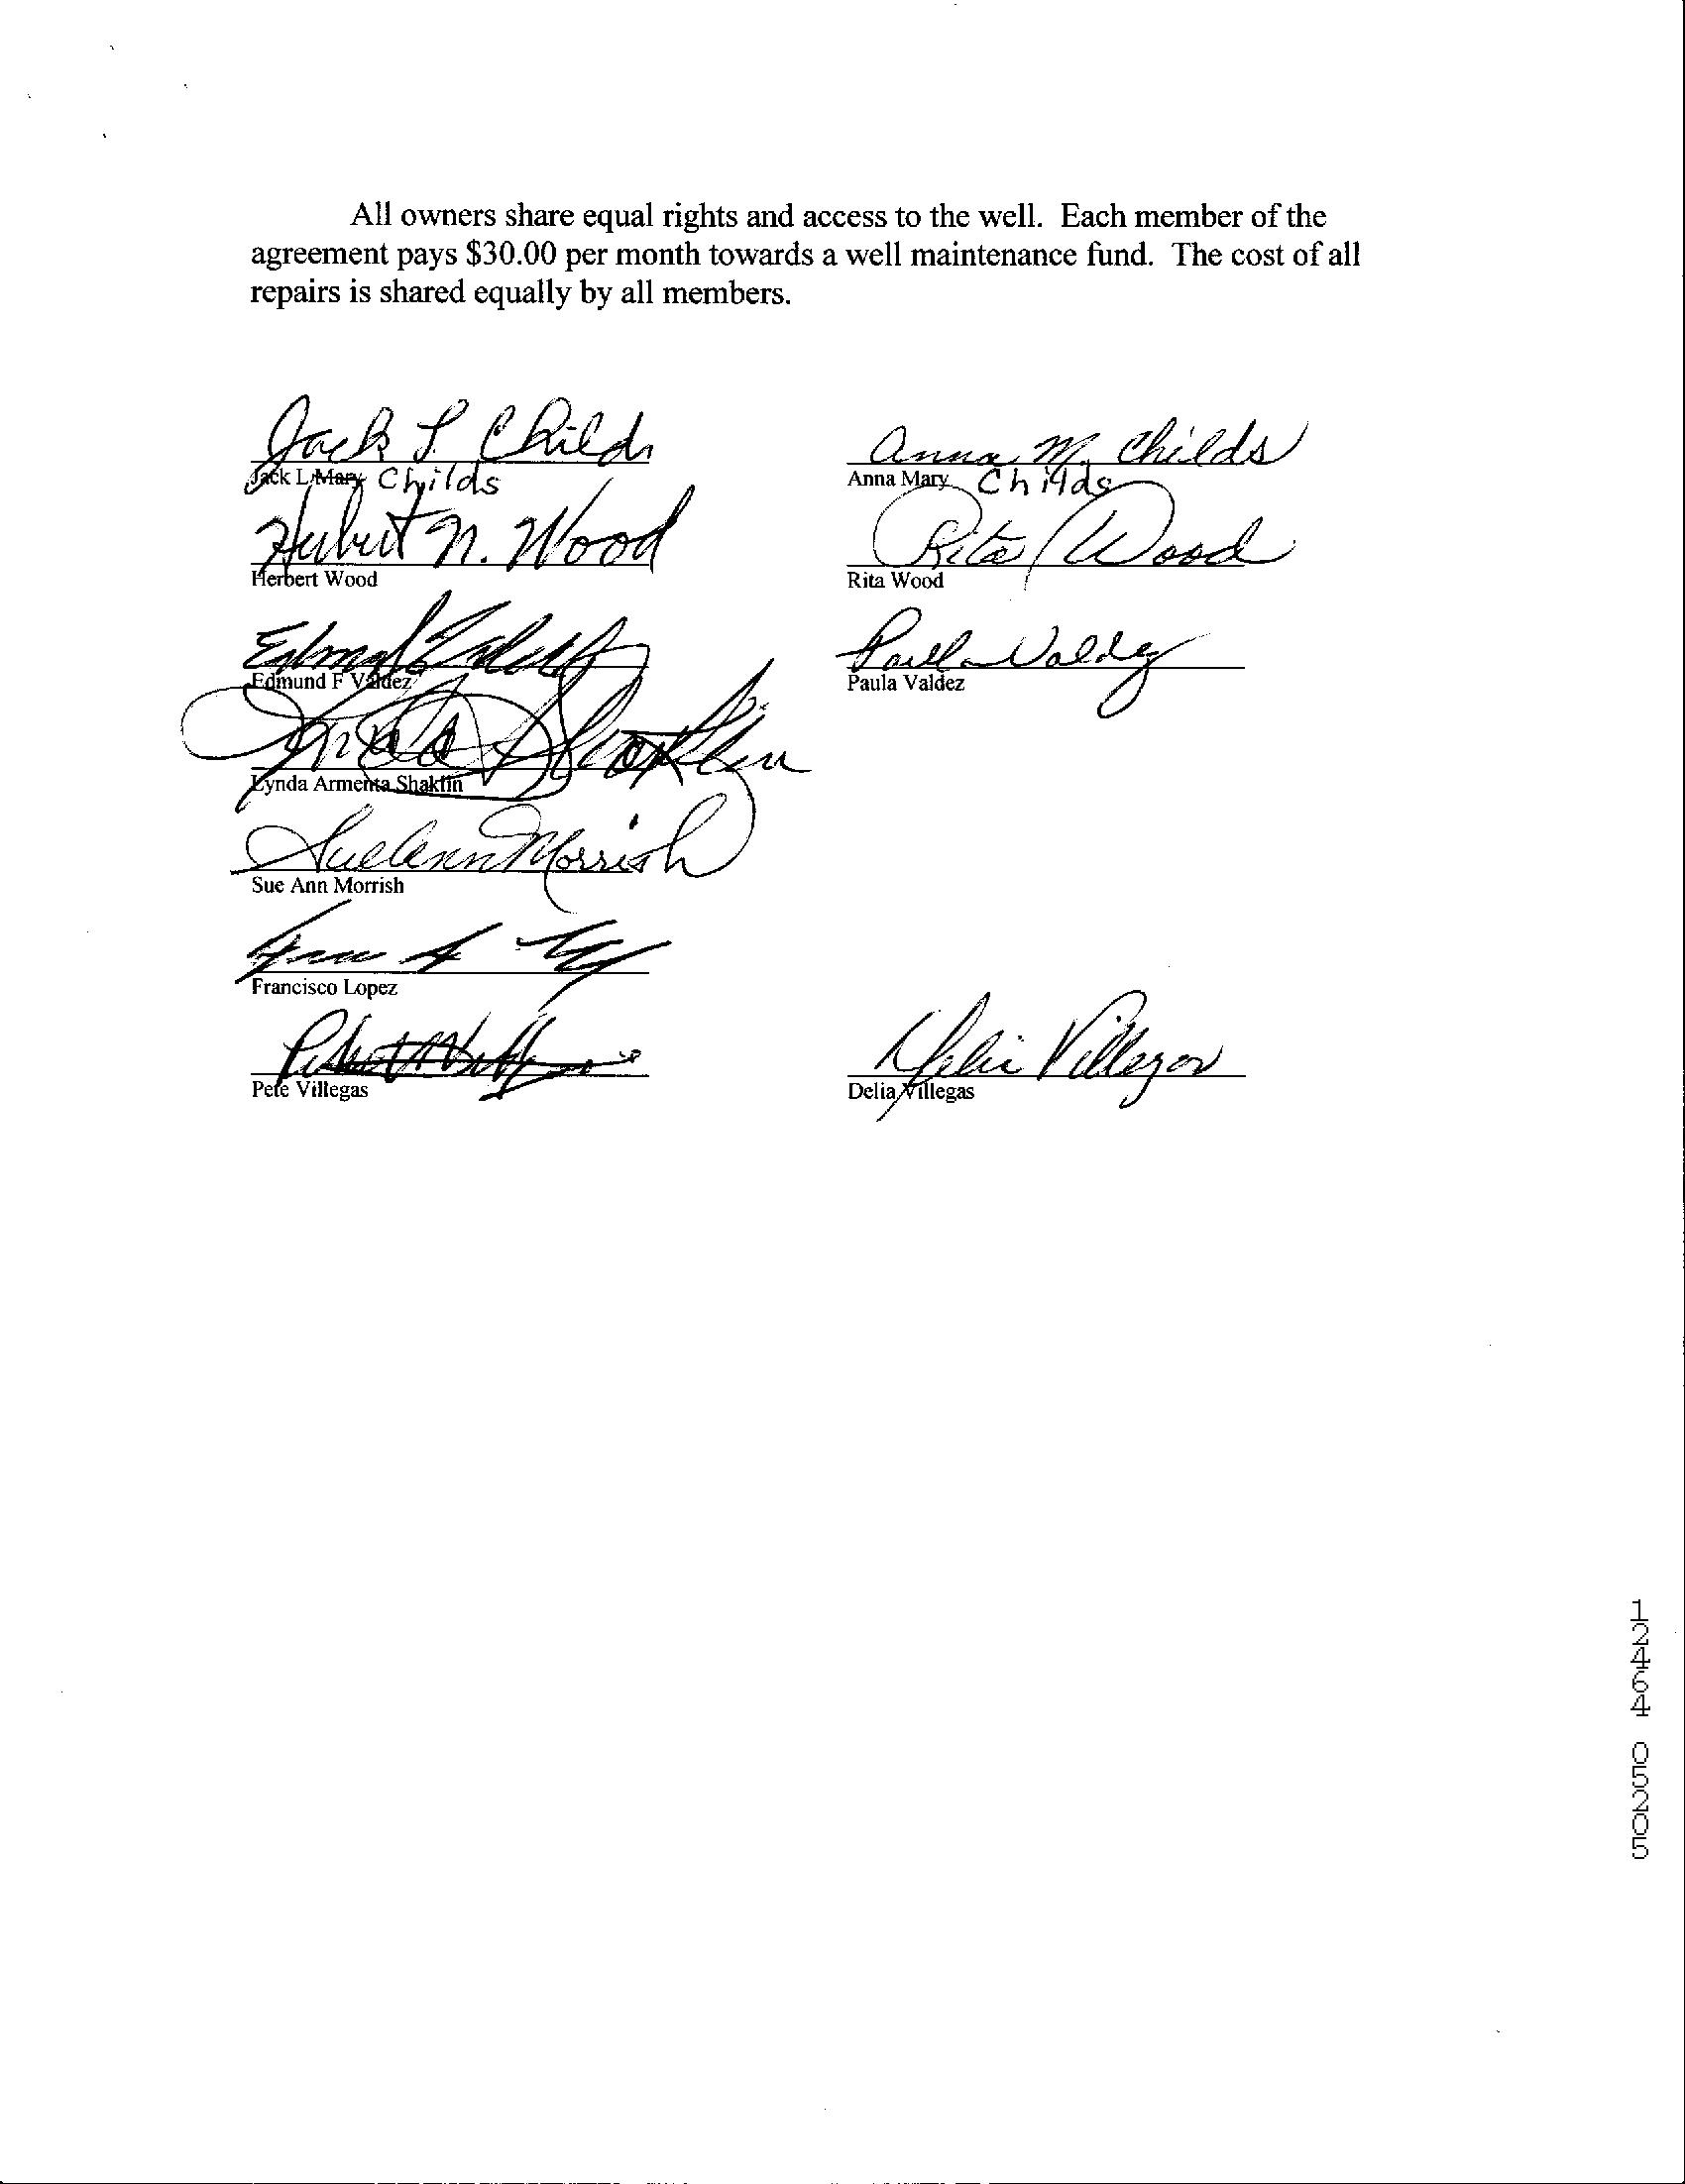 All owners share equal rights and access to the well. Each member of the
agreement pays $30.00 per month towards a well maintenance fund. The cost of all
repairs is shared equally by all members.
Jack L Childs
Anna M. Childs
Jack L Mary Childs
Anna Mary Childs
Herbert N. Wood
Rita Wood
Herbert Wood
Rita Wood
Edmund Valdez
Paula Valdez
Edmund F Valdez
Paula Valdez
Lynda Shaklin
Lynda Armenta Shaklin
Sue Ann Morrish
Sue Ann Morrish
Francisco Lopez
Delia Villegas
Pete Villegas
Delia Villegas
12464 05205